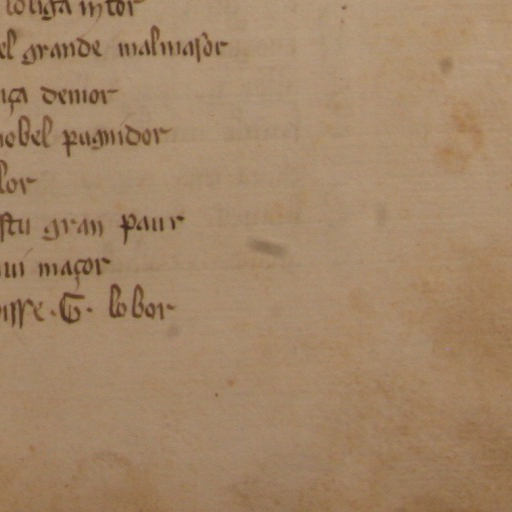 el grande malmasor
ça demor
nobel pugnidor
lor
stu gran paur
ui maçor
isse .G. lobor